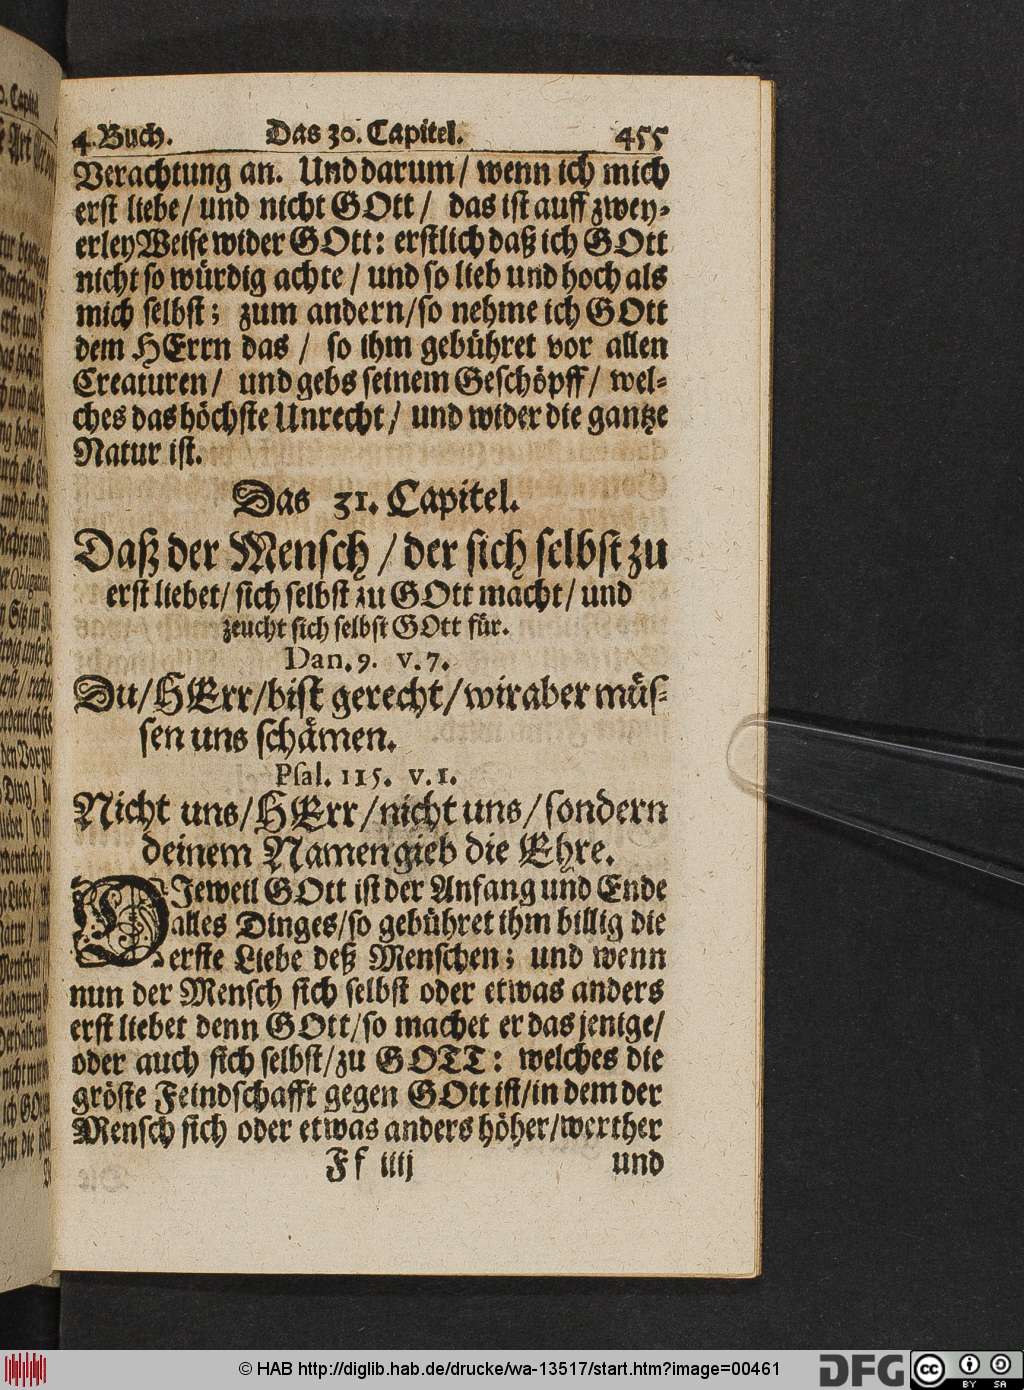 4. Buch. Das 30. Capitel. 455
Verachtung an. Und darum / wenn ich mich
erst liebe / und nicht GOtt / das ist auff zwey-
erley Weise wider GOtt: erstlich daß ich GOtt
nicht so würdig achte / und so lieb und hoch als
mich selbst; zum andern / so nehme ich GOtt
dem HErrn das / so ihm gebühret vor allen
Creaturen / und gebs seinem Geschöpff / wel-
ches das höchste Unrecht / und wider die gantze
Natur ist.
Das 31. Capitel.
Daß der Mensch / der sich selbst zu
erst liebet / sich selbst zu GOtt macht / und
zeucht sich selbst GOtt für.
Dan. 9. v. 7.
Du / HErr / bist gerecht / wir aber müs-
sen uns schämen.
Psal. 115. v. 1.
Nicht uns / HErr / nicht uns / sondern
deinem Namen gieb die Ehre.
DJeweil GOtt ist der Anfang und Ende
alles Dinges / so gebühret ihm billig die
erste Liebe deß Menschen; und wenn
nun der Mensch sich selbst oder etwas anders
erst liebet denn GOtt / so machet er das jenige /
oder auch sich selbst / zu GOTT: welches die
gröste Feindschafft gegen GOtt ist / in dem der
Mensch sich oder etwas anders höher / werther
Ff iiij und
© HAB http://diglib.hab.de/drucke/wa-13517/start.htm?image=00461
DFG
cc BY SA